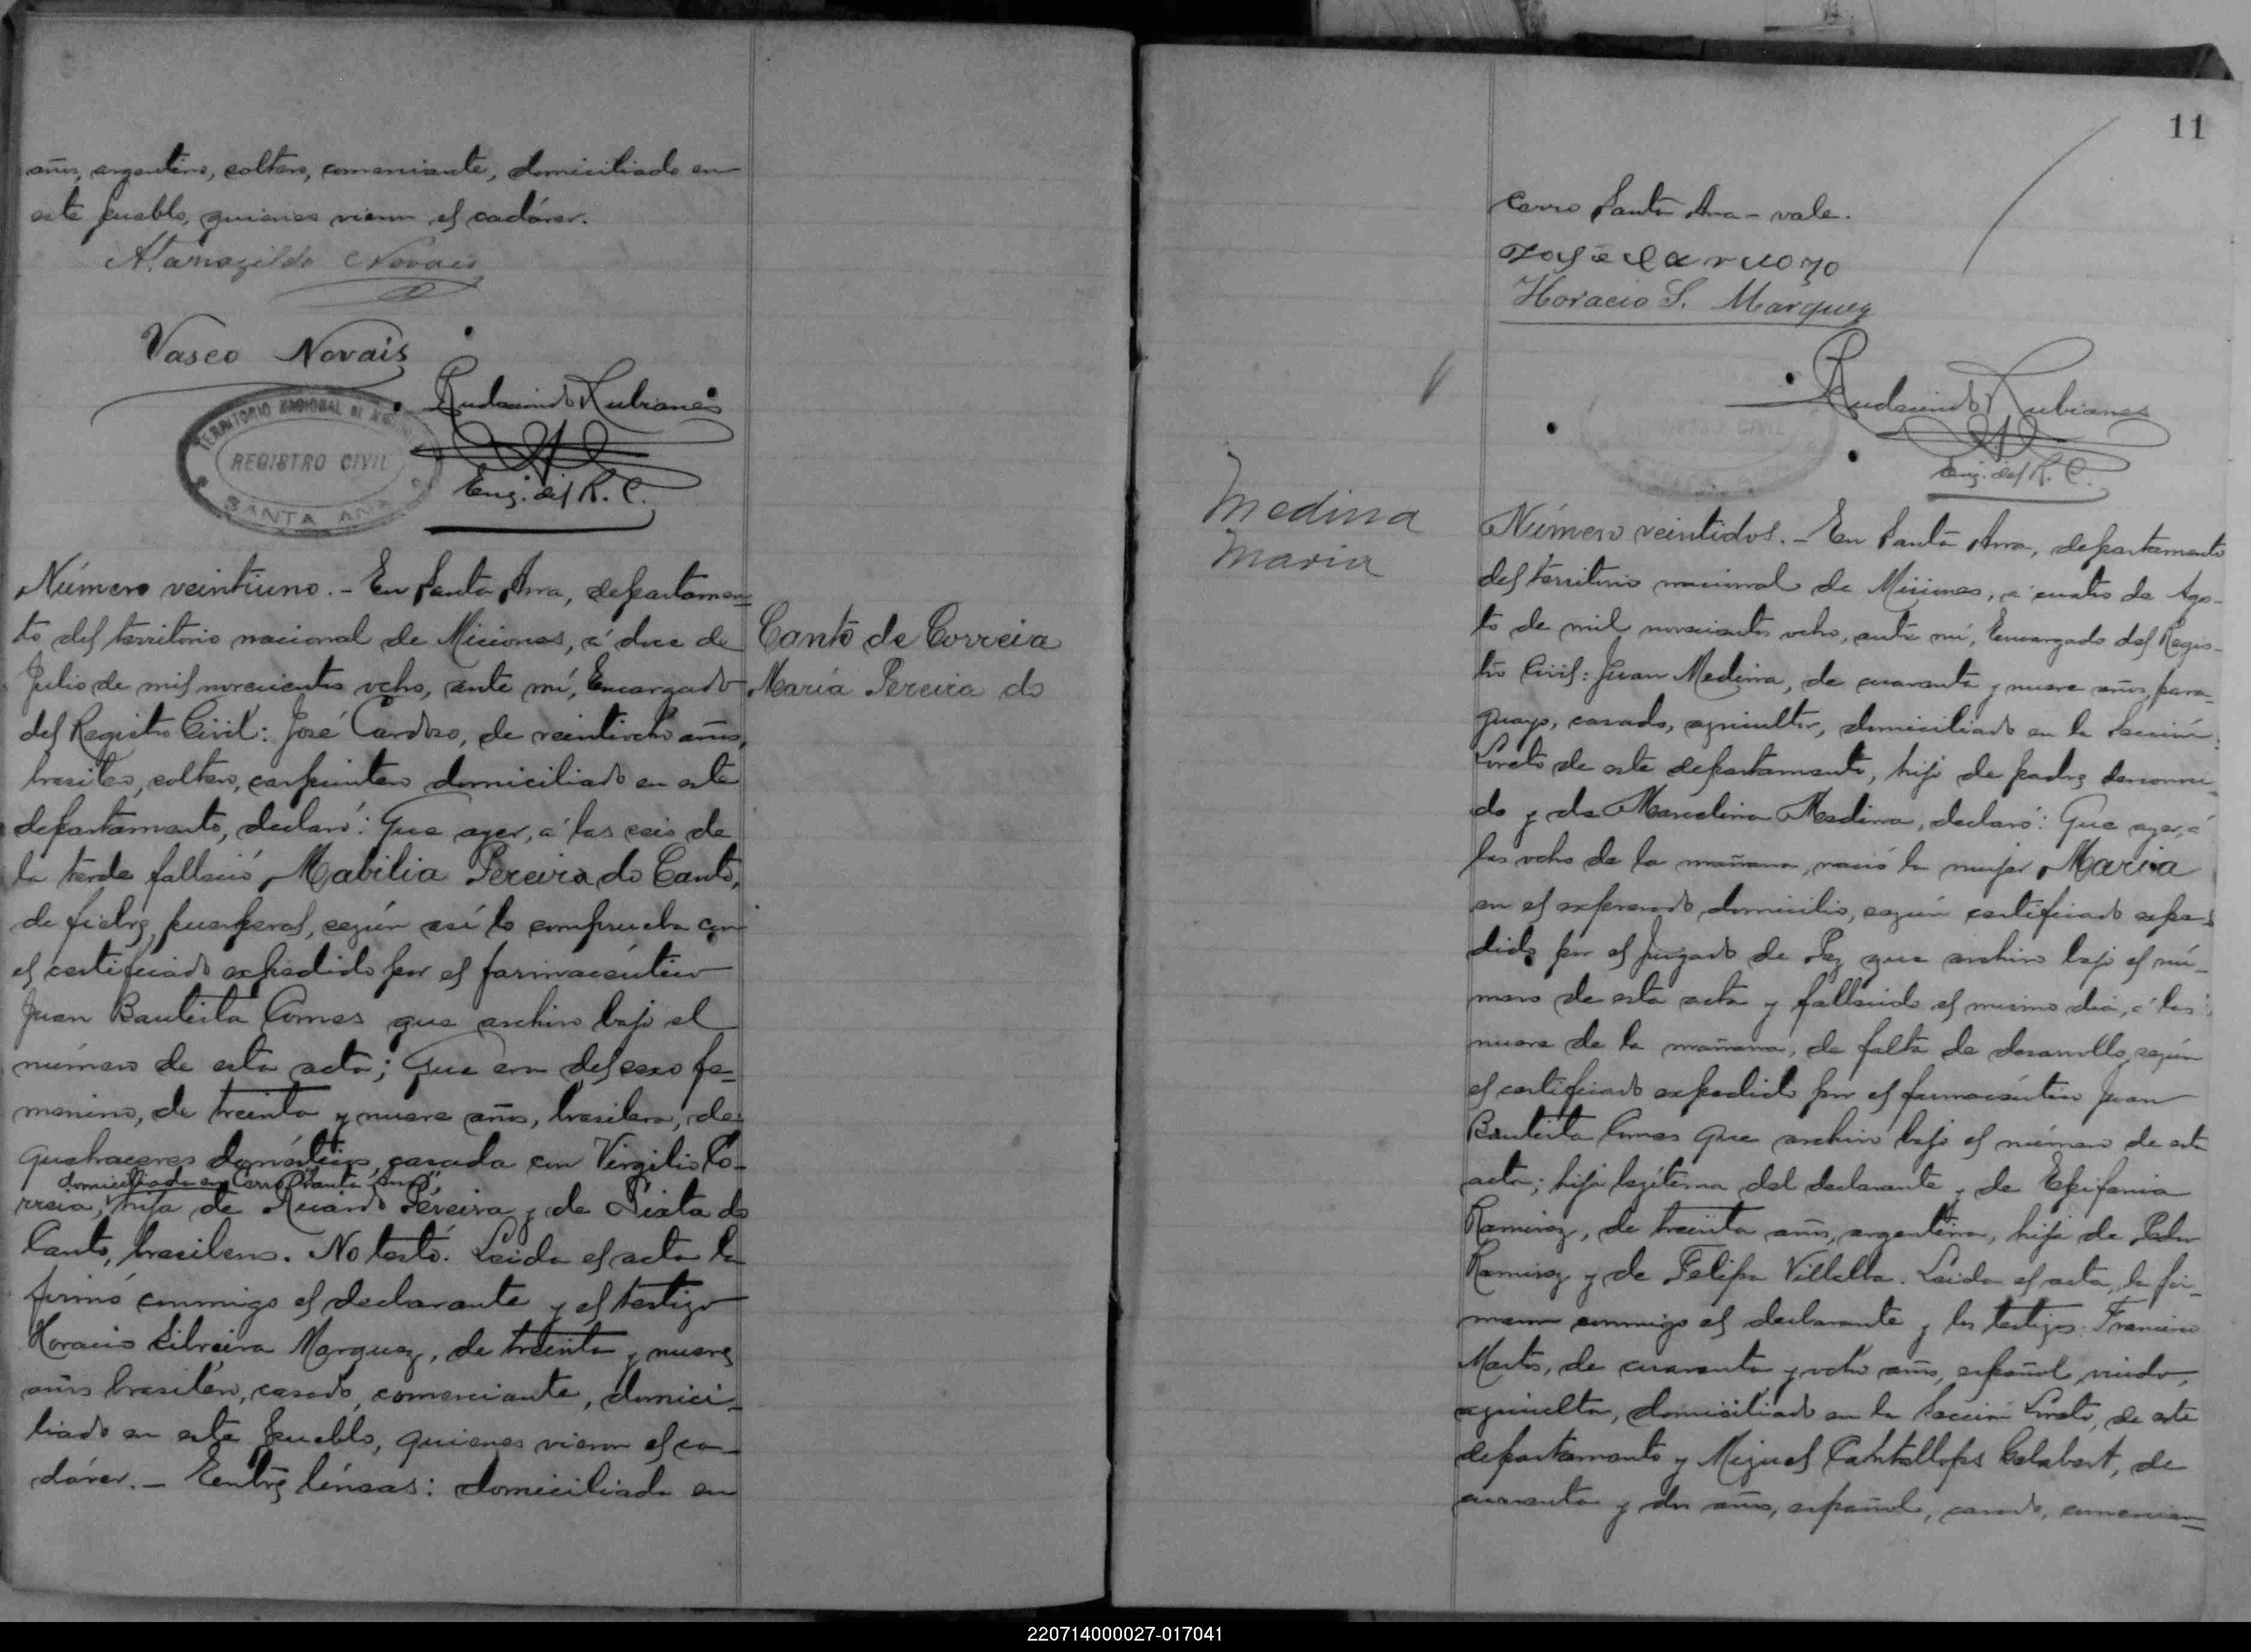 años, argentino, soltero, comerciante, domiciliado en
este pueblo, quienes vieron el cadáver.
Atanagildo Novais
Vasco Novais
Rudecindo Rubianes
Enc. del R. C.
TERRITORIO NACIONAL DE MISIONES
REGISTRO CIVIL
SANTA ANA
Número veintiuno. - En Santa Ana, departamen=
to del territorio nacional de Misiones, á doce de
Julio de mil novecientos ocho, ante mí, Encargado
del Registro Civil: José Cardozo, de veintiocho años,
brasilero, soltero, carpintero domiciliado en este
departamento, declaró: Que ayer, á las seis de
la tarde falleció Mabilia Pereira do Canto,
de fiebre puerperal, según así lo comprueba con
el certificado expedido por el farmacéutico
Juan Bautista Comes que archivo bajo el
número de esta acta; Que era del sexo fe=
menino, de treinta y nueve años, brasilera, de
quehaceres domésticos, casada con Virgilio Co-
domiciliada en Cerro "Santa Ana",
rreia, hija de Ricardo Pereira y de Sixta do
Canto, brasileros. No testó. Leida el acta la
firmó conmigo el declarante y el testigo
Horacio Silveira Marquez, de treinta y nueve
años brasilero, casado, comerciante, domici-
liado en este pueblo, quienes vieron el ca-
dáver. - Entre líneas: domiciliada en
Canto de Correia
María Pereira do
11
Cerro Santa Ana - vale.
José Cardozo
Horacio S. Marquez
Rudecindo Rubianes
Enc. del R. C.
REGISTRO CIVIL
Medina
Maria
Número veintidos. - En Santa Ana, departamento
del territorio nacional de Misiones, á cuatro de Agos-
to de mil novecientos ocho, ante mí, Encargado del Regis-
tro Civil: Juan Medina, de cuarenta y nueve años, para-
guayo, casado, agricultor, domiciliado en la Sección
Loreto de este departamento, hijo de padre desconoci-
do y de Marcelina Medina, declaró: Que ayer, á
las ocho de la mañana, nació la mujer Maria
en el expresado domicilio, según certificado expe-
dido por el Juzgado de Paz que archivo bajo el nú-
mero de esta acta y falleció el mismo dia, á las
nueve de la mañana, de falta de desarrollo, según
el certificado expedido por el farmacéutico Juan
Bautista Comes que archivo bajo el número de esta
acta; hija legítima del declarante y de Epifania
Ramirez, de treinta años, argentina, hija de Pedro
Ramirez y de Felipa Villalba. Leida el acta, la fir-
maron conmigo el declarante y los testigos: Francisco
Martos, de cuarenta y ocho años, español, viudo,
agricultor, domiciliado en la Sección Loreto, de este
departamento y Miguel Cantallops Calabert, de
cuarenta y dos años, español, casado, comercian=
220714000027-017041